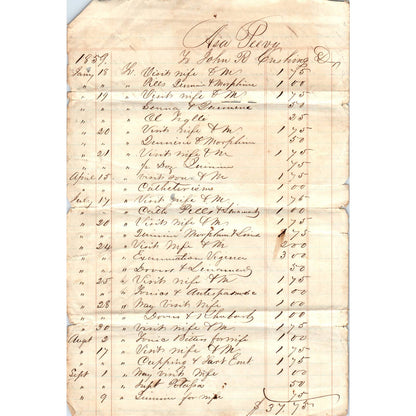 Asa Peevy
1859. To John R Cushing Dr
Jany 18 To Visit wife & M 1 75
" " " Pills Quinine & Morphine 1 00
" 19 " Visit wife & M 1 75
" " " & Quinine 50
" " " Ol 25
" 20 " Visit Wife & M 1 75
" " " Quinine & Morphine 50
" 21 " Visit Wife & M 1 75
" " " Quinine 75
April 15 " Visit & M 1 75
" " " Catheterism 1 00
July 17 " Visit Wife & M 1 75
" " " Cath Pills & 1 00
" 20 " Visit Wife & M 1 75
" " " Quinine Morphine & 75
" 24 " Visit Wife & M 2 00
" " " Examination 3 00
" " " Dovers & 50
" 25 " Visit Wife & M 1 75
" " " Tonics & 1 00
" 28 " Way Visit Wife 1 00
" " " Dovers & Rhubarb 1 00
" 30 " Visit Wife & M 1 75
Augst 2 " Tonic Bitters for wife 1 00
" 17 " Visit Wife & M 1 75
" " " Cupping & Tart Emt 1 00
Sept 1 " Way visit Wife 1 00
" " " Potassa 50
" 9 " for wife 75
$ 37.75